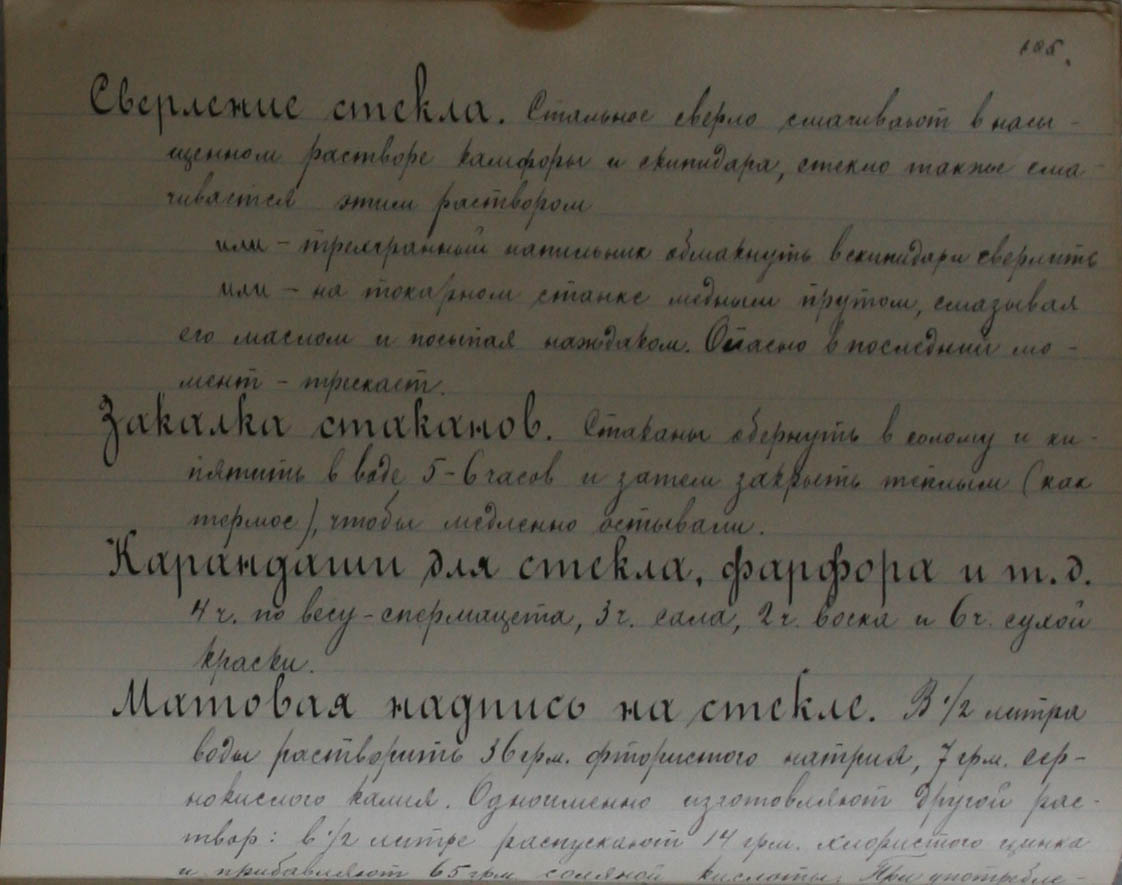 185.
Сверление стекла. Стальное сверло смачивают в насы-
щенном растворе камфоры и скипидара, стекло также сма-
чивается этим раствором
или - трехгранный напильник обмакнуть в скипидар и сверлить
или - на токарном станке медным прутом, смазывая
его маслом и посыпая наждаком. Опасно в последний мо-
мент - трескает.
Закалка стаканов. Стаканы обернуть в солому и ки-
пятить в воде 5-6 часов и затем закрыть теплым (как
термос), чтобы медленно остывали.
Карандаши для стекла, фарфора и т.д.
4 ч. по весу - спермацета, 3 ч. сала, 2 ч. воска и 6 ч. сухой
краски.
Матовая надпись на стекле. В 1/2 литра
воды растворить 36 грм. фтористого натрия, 7 грм. сер-
нокислого калия. Одновременно изготовляют другой рас-
твор: в 1/2 литре распускают 14 грм. хлористого цинка
и прибавляют 65 грм. соляной кислоты. При употребле-